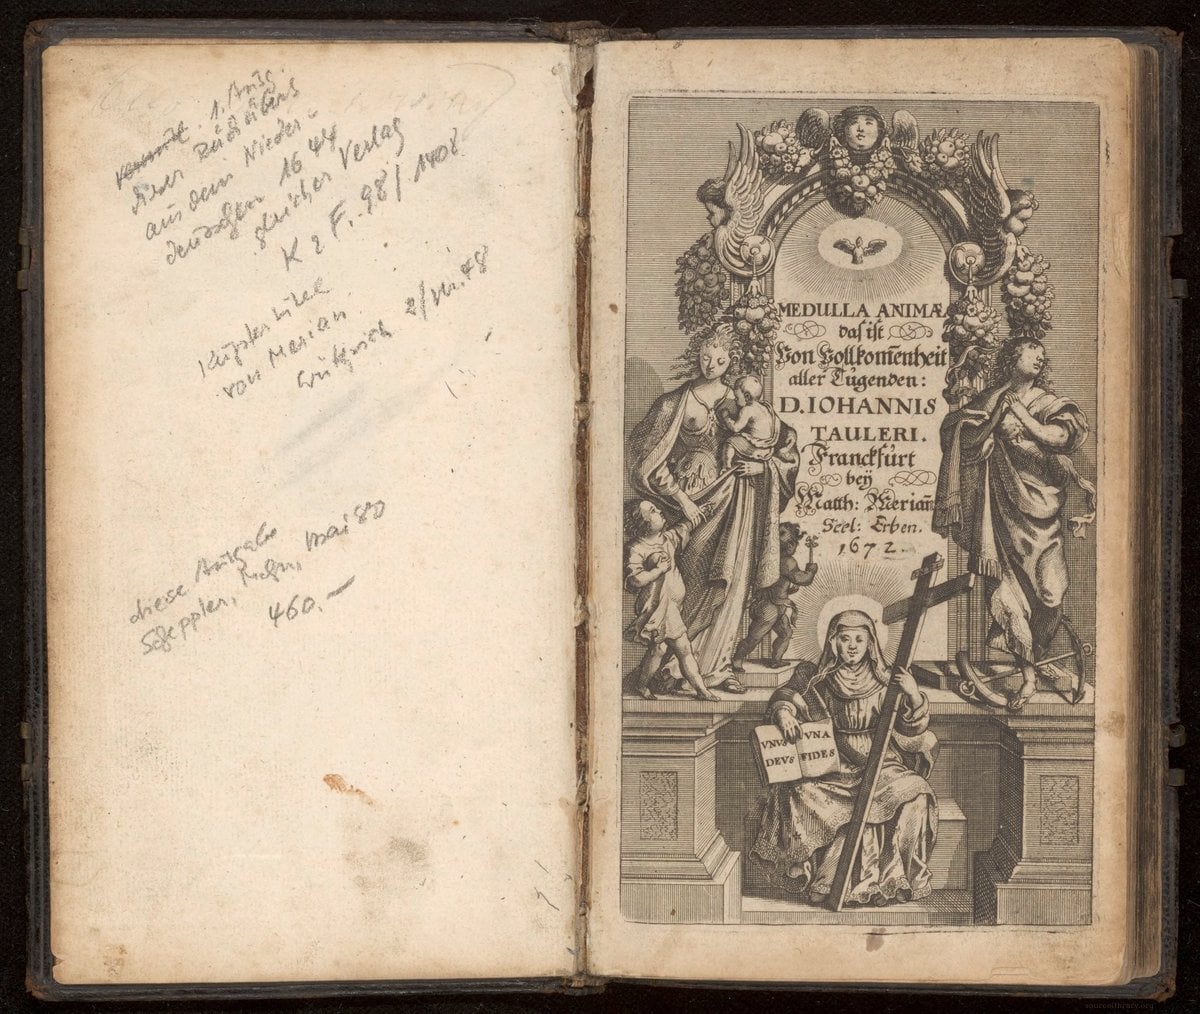 1. Ausg.
Rückübers
aus dem Nieder-
deutschen 1644
gleicher Verlag
K 2 F. 98/1408
Kupfertitel
von Merian
Wüthrich 2/
diese Ausgabe
Mai 80
460.—
MEDULLA ANIMÆ
das ist
Von Vollkom̃enheit
aller Tugenden:
D. IOHANNIS
TAULERI.
Franckfurt
beÿ
Matth: Merian̄
Seel: Erben.
1672.
VNVS DEVS
VNA FIDES
sourcelibrary.org